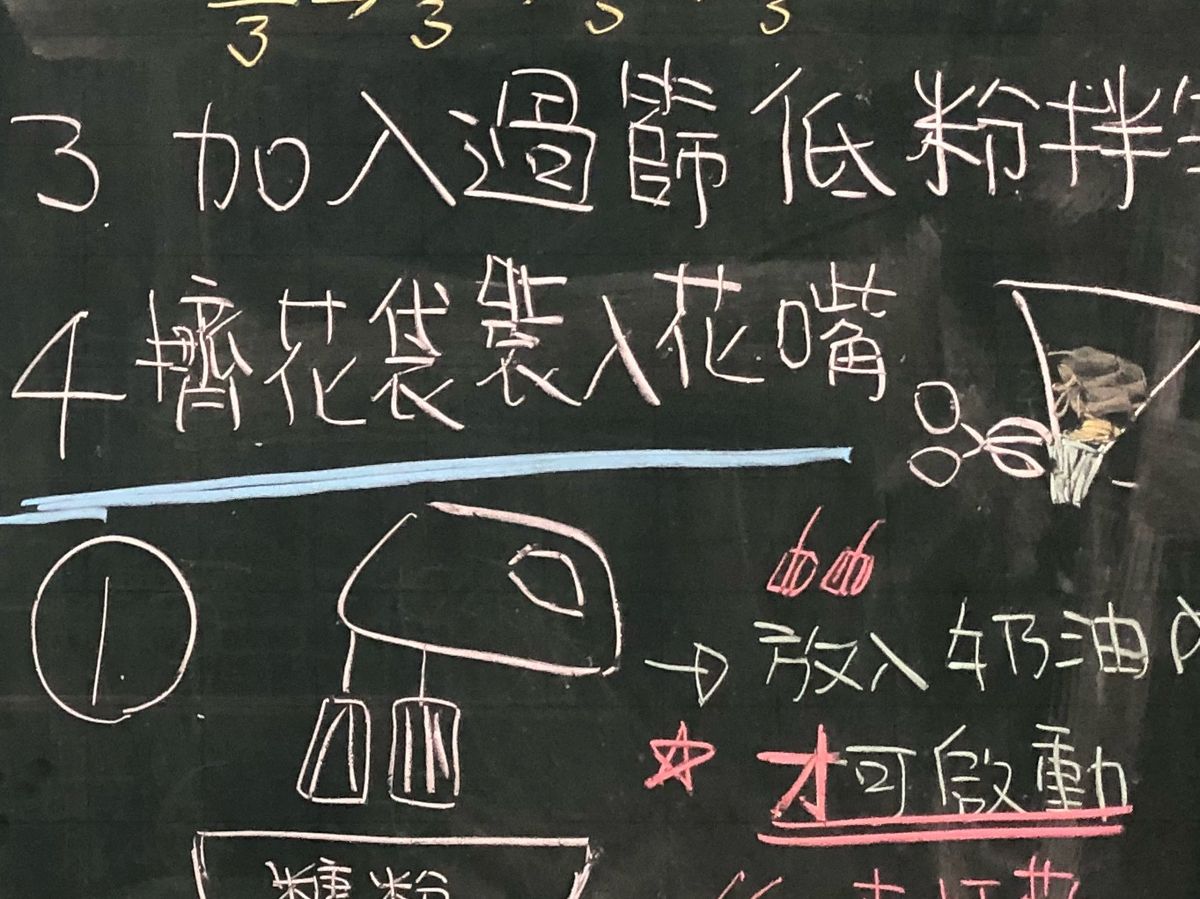 3 → 3 3 3
3 加入過篩低粉拌
4 擠花袋裝入花嘴
①
→ 放入奶油
☆ 才可啟動
糖粉